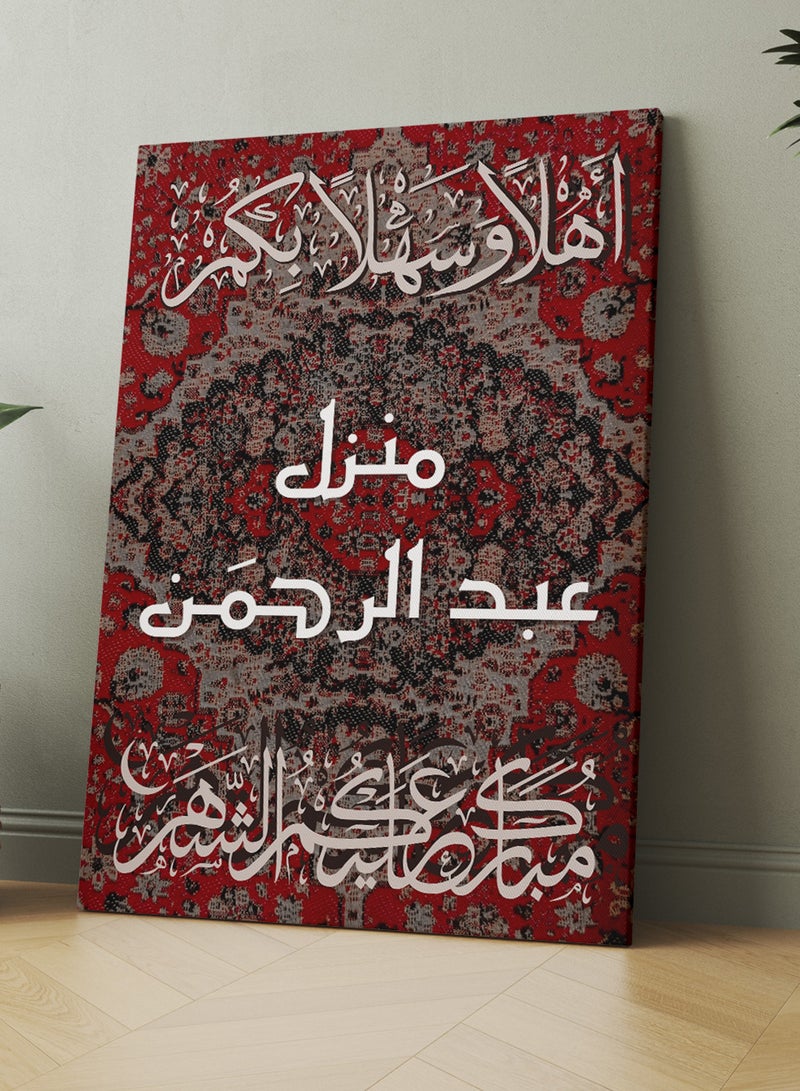 أَهْلًا وَسَهْلًا بِكُمْ
منزل
عبد الرحمَن
مُبَارَكٌ عَلَيْكُمُ الشَّهْر